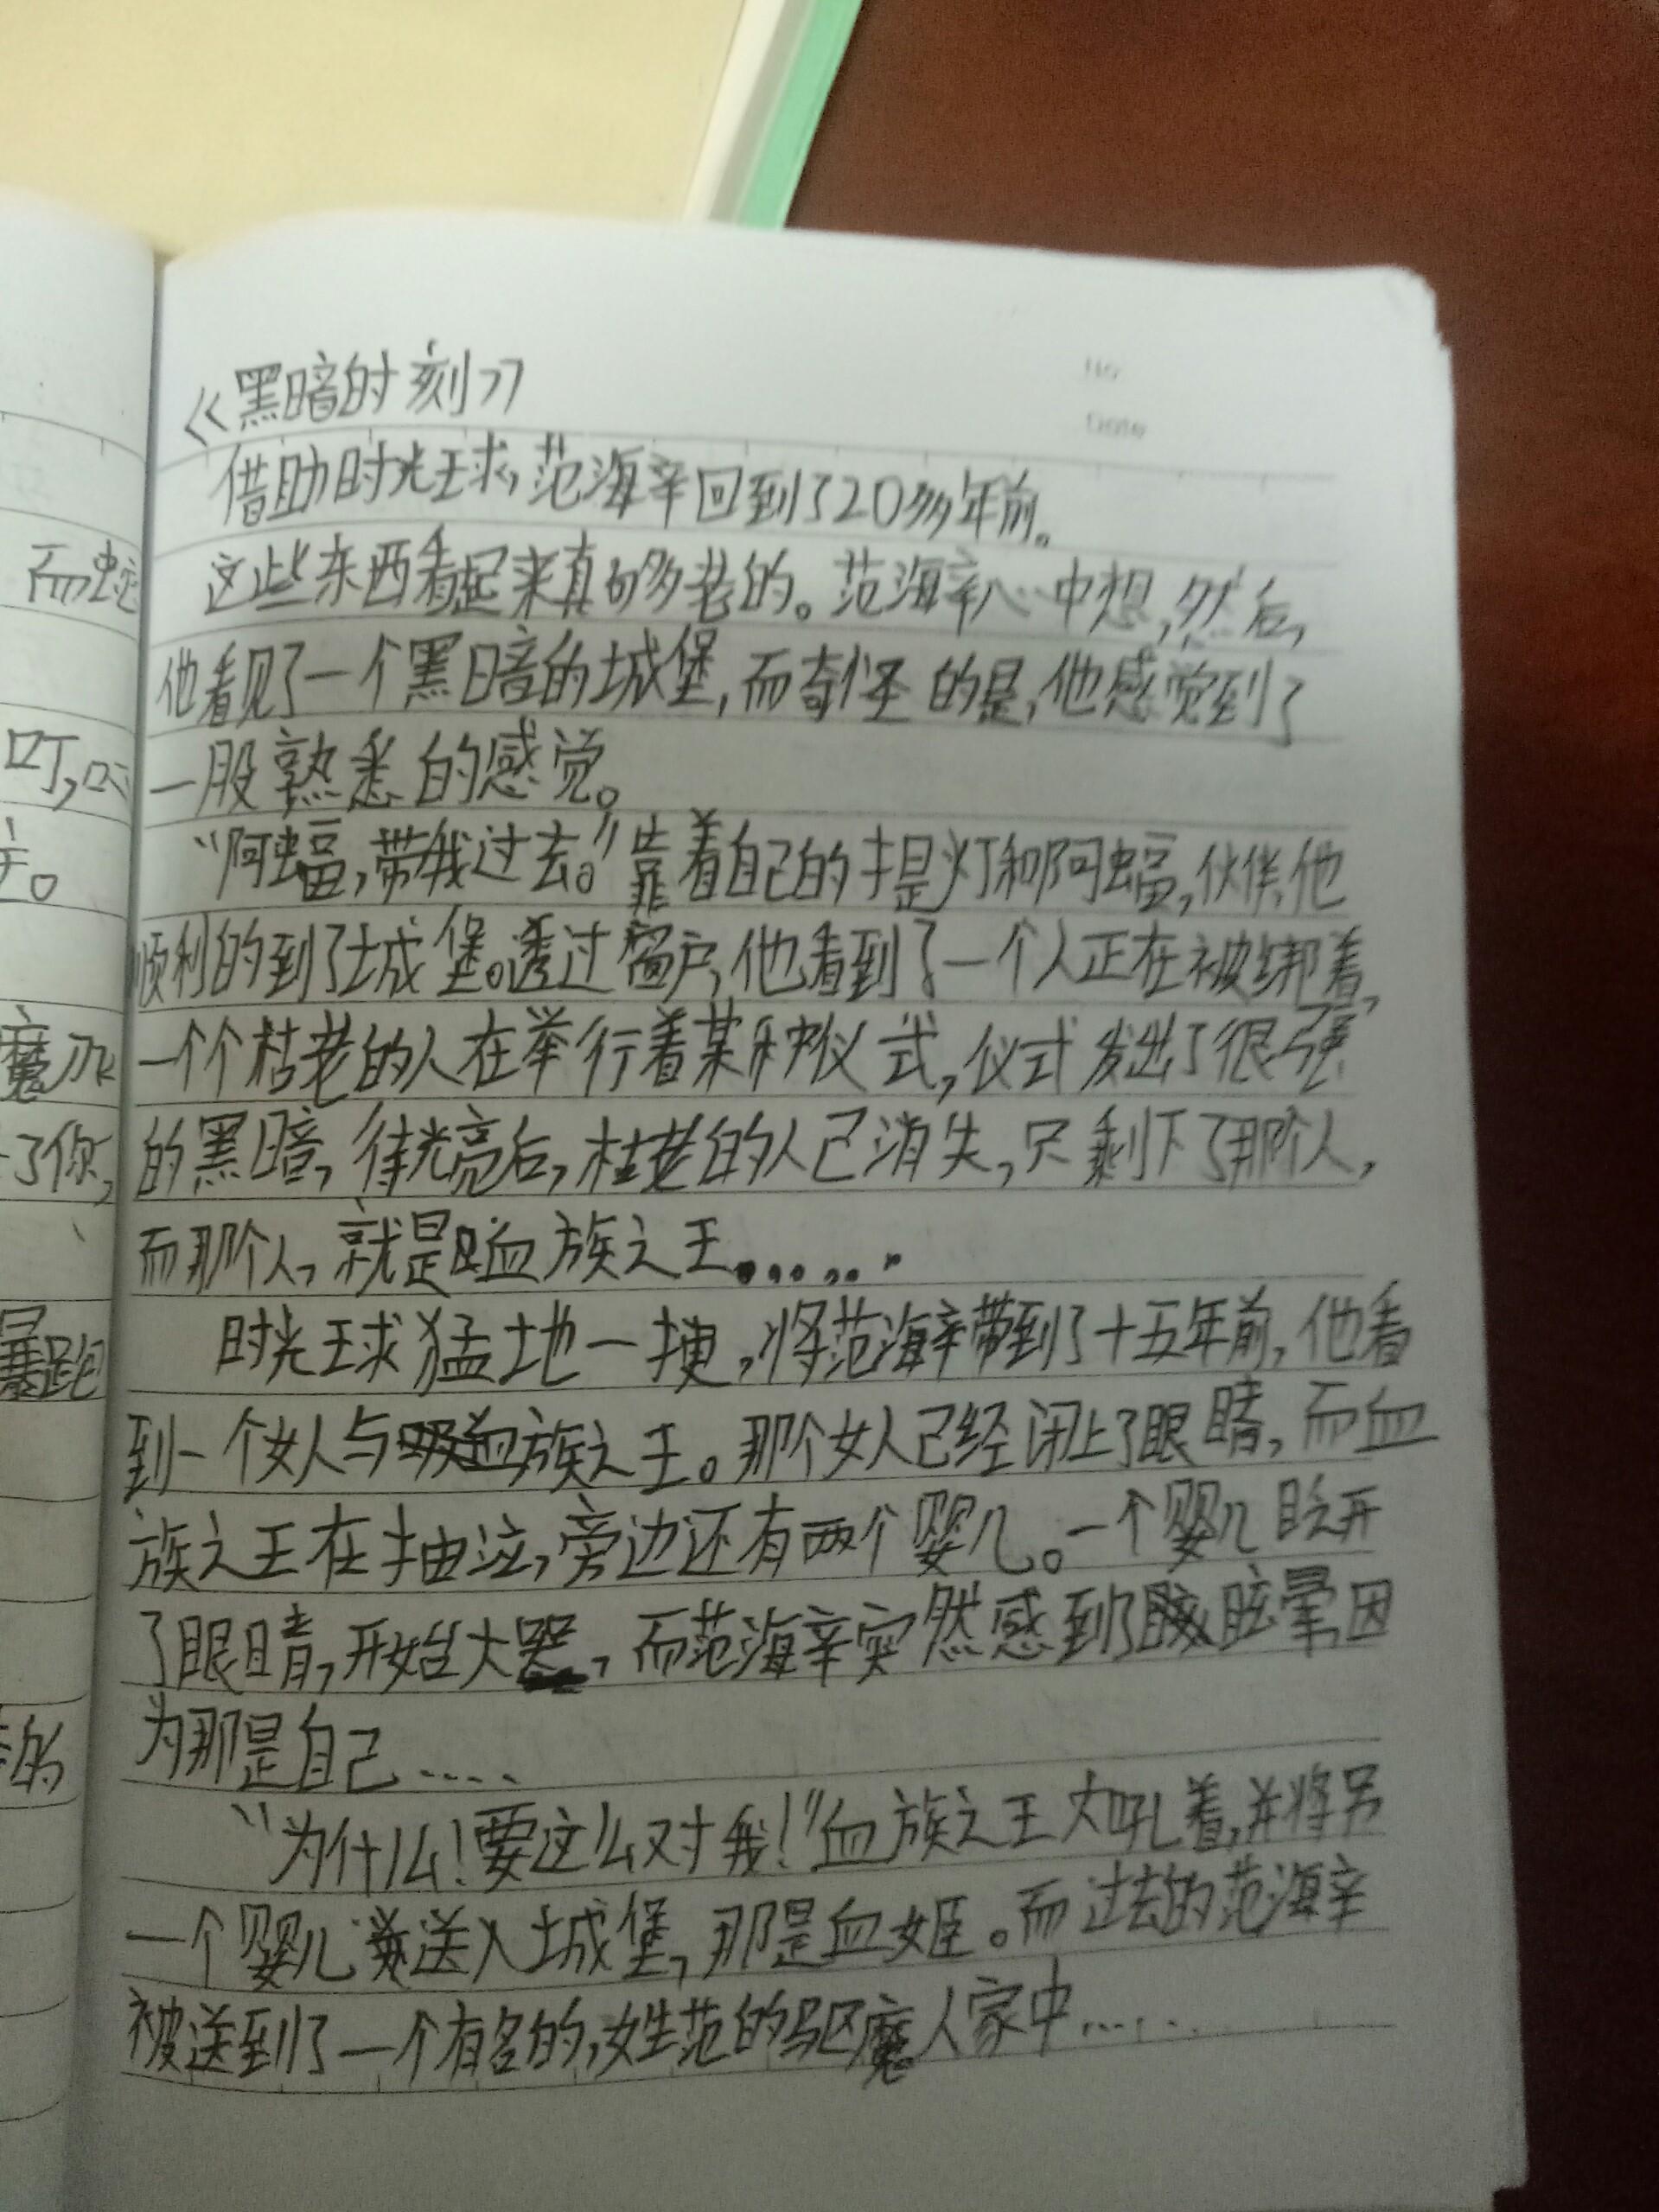 《黑暗时刻》
借助时光球,范海辛回到了20多年前。
这些东西看起来真够老的。范海辛心中想,然后,
而
他看见了一个黑暗的城堡,而奇怪的是,他感觉到了
叮,
一股熟悉的感觉。
“阿蝠,带我过去。”靠着自己的提灯和阿蝠,伙伴,他
主。
顺利的到了城堡。透过窗户,他看到了一个人正在被绑着,
魔
一个个枯老的人在举行着某种仪式,仪式发出了很强
了你,
的黑暗,待光亮后,枯老的人已消失,只剩下了那个人,
而那个人,就是血族之王......
暴跑
时光球猛地一揰,将范海辛带到了十五年前,他看
到一个女人与血族之王。那个女人已经闭上了眼睛,而血
族之王在抽泣,旁边还有两个婴儿。一个婴儿眨开
了眼睛,开始大哭,而范海辛突然感到了眩晕,因
的
为那是自己.....
“为什么!要这么对我!”血族之王大吼着,并将另
一个婴儿送入城堡,那是血姬。而过去的范海辛
被送到了一个有名的,姓范的驱魔人家中......